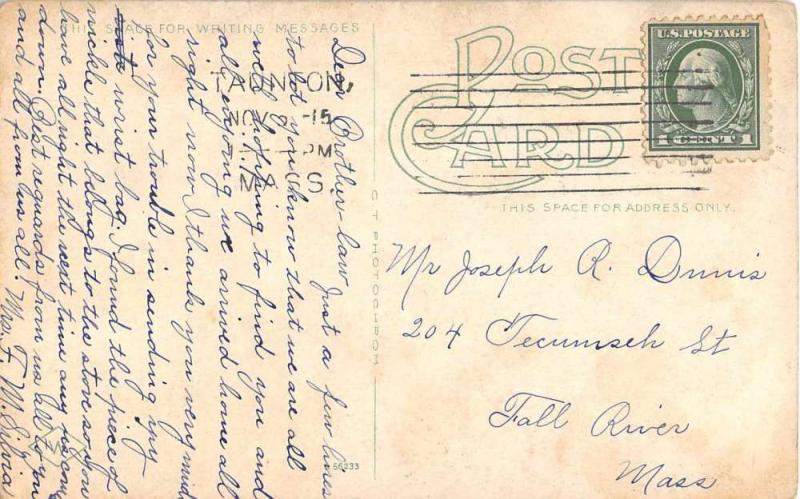 THIS SPACE FOR WRITING MESSAGES
Dear Brother-law Just a few lines
to let you know that we are all
well hopping to find you and
all enjoing we arrived home all
right now I thank you very mutch
for your trouble in sending my
wrist bag. I found the piece of
nickle that belongs to the stove so you
have all right the next time any us come
down. Best reguards from us all to you
and all from us all. Mrs. F. W. Silvia
POST
CARD
U.S. POSTAGE
1 CENT 1
TAUNTON,
NOV 15
PM
THIS SPACE FOR ADDRESS ONLY.
C T PHOTOCHROM
Mr Joseph R. Dunis
204 Tecumseh St
Fall River
Mass
56233